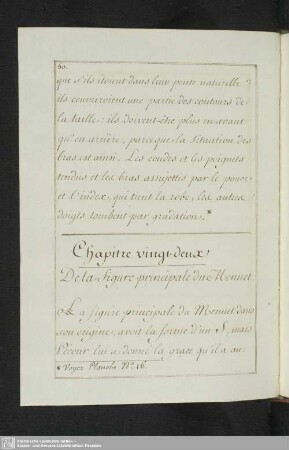 60.
que s'ils étoient dans leur pente naturelle :
ils couvriroient une partie des contours de
la taille : ils doivent être plus en avant
qu'en arrière, parceque la situation des
bras est ainsi. Les coudes et les poignets
tendus et les bras assujettis par le pouce
et l'index qui tient la robe, les autres
doigts tombent par gradation. *
Chapitre vingt-deux
De la figure principale du Menuet.
La figure principale du Menuet dans
son origine, avoit la forme d'un S. mais
lui a donné la grace qu'il a au=
* Voyez Planche No. 16.